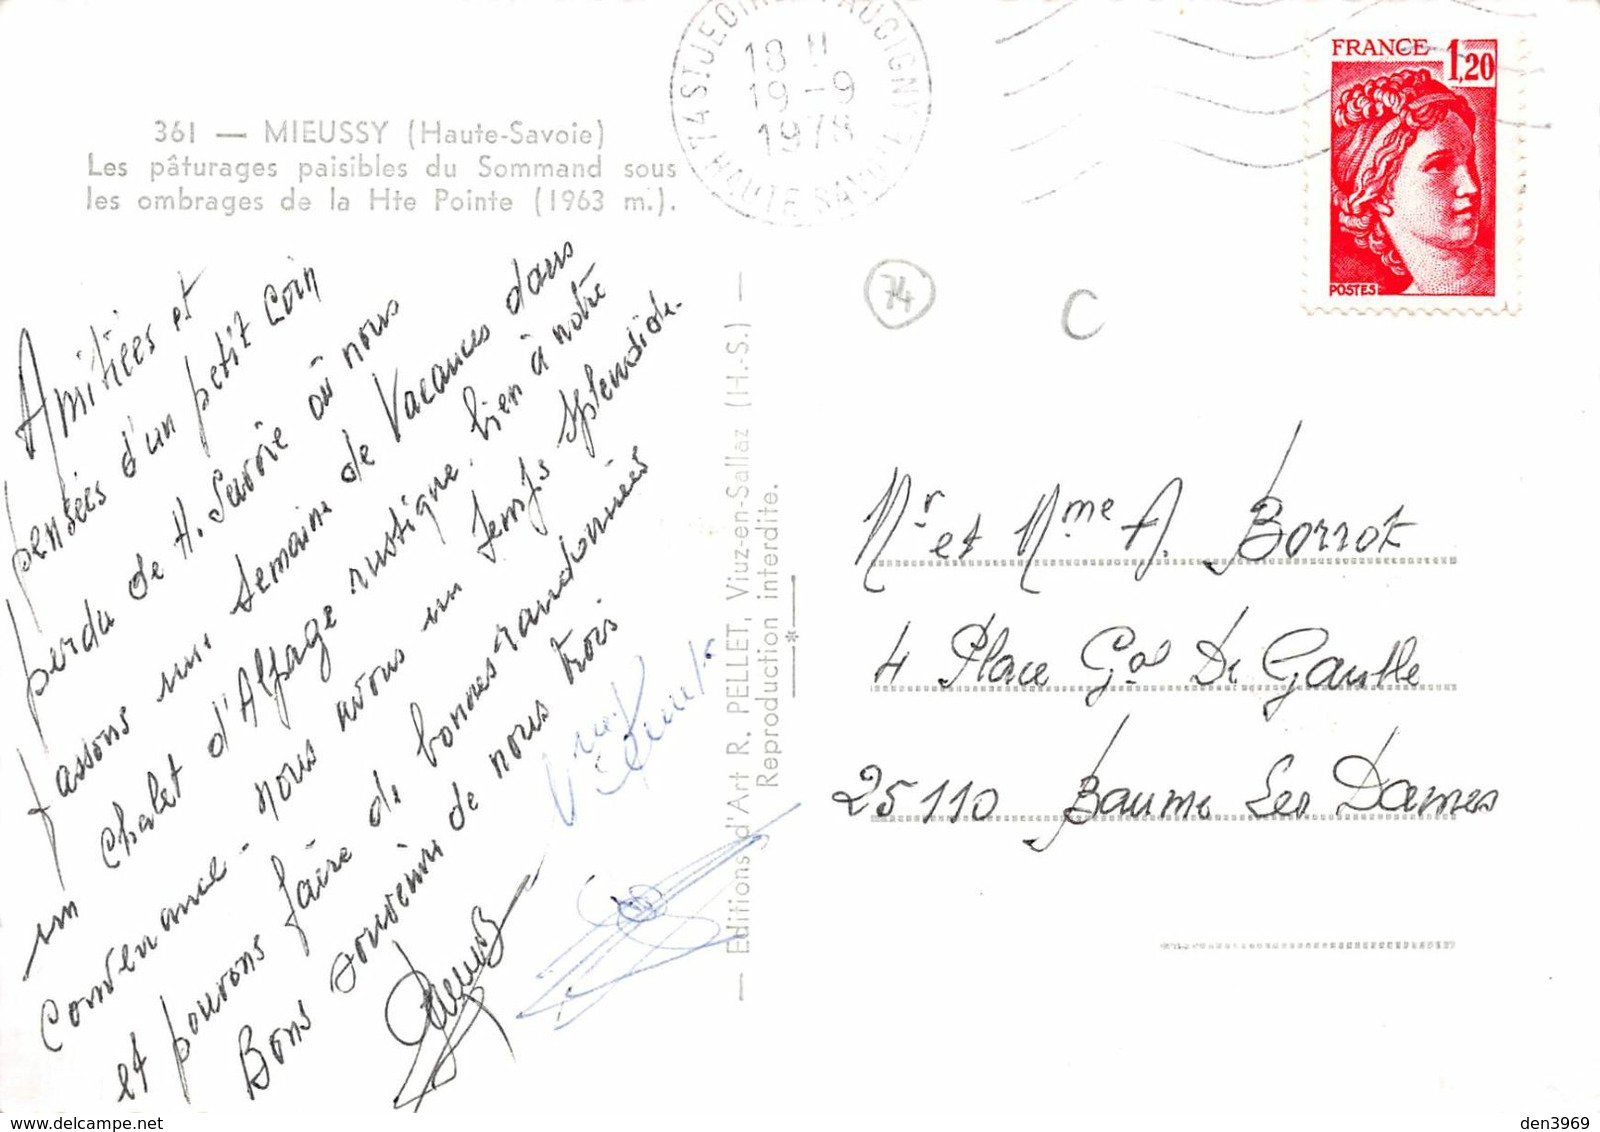 361 — MIEUSSY (Haute-Savoie)
Les pâturages paisibles du Sommand sous
les ombrages de la Hte Pointe (1963 m.).
74 ST JEOIRE FAUCIGNY
18 H
19-9
1978
HAUTE SAVOIE
FRANCE 1,20
POSTES
74
C
Amitiées et
pensées d'un petit coin
perdu de H. Savoie où nous
passons une semaine de Vacances dans
un chalet d'Alpage rustique, bien à notre
convenance - nous avons un temps splendide
et pouvons faire de bonnes randonnées
Bons souvenirs de nous trois
— Editions d'Art R. PELLET, Viuz-en-Sallaz (H.-S.) —
Reproduction interdite.
Mr et Mme A. Borrot
4 Place Gal De Gaulle
25110 Baume Les Dames
den3969